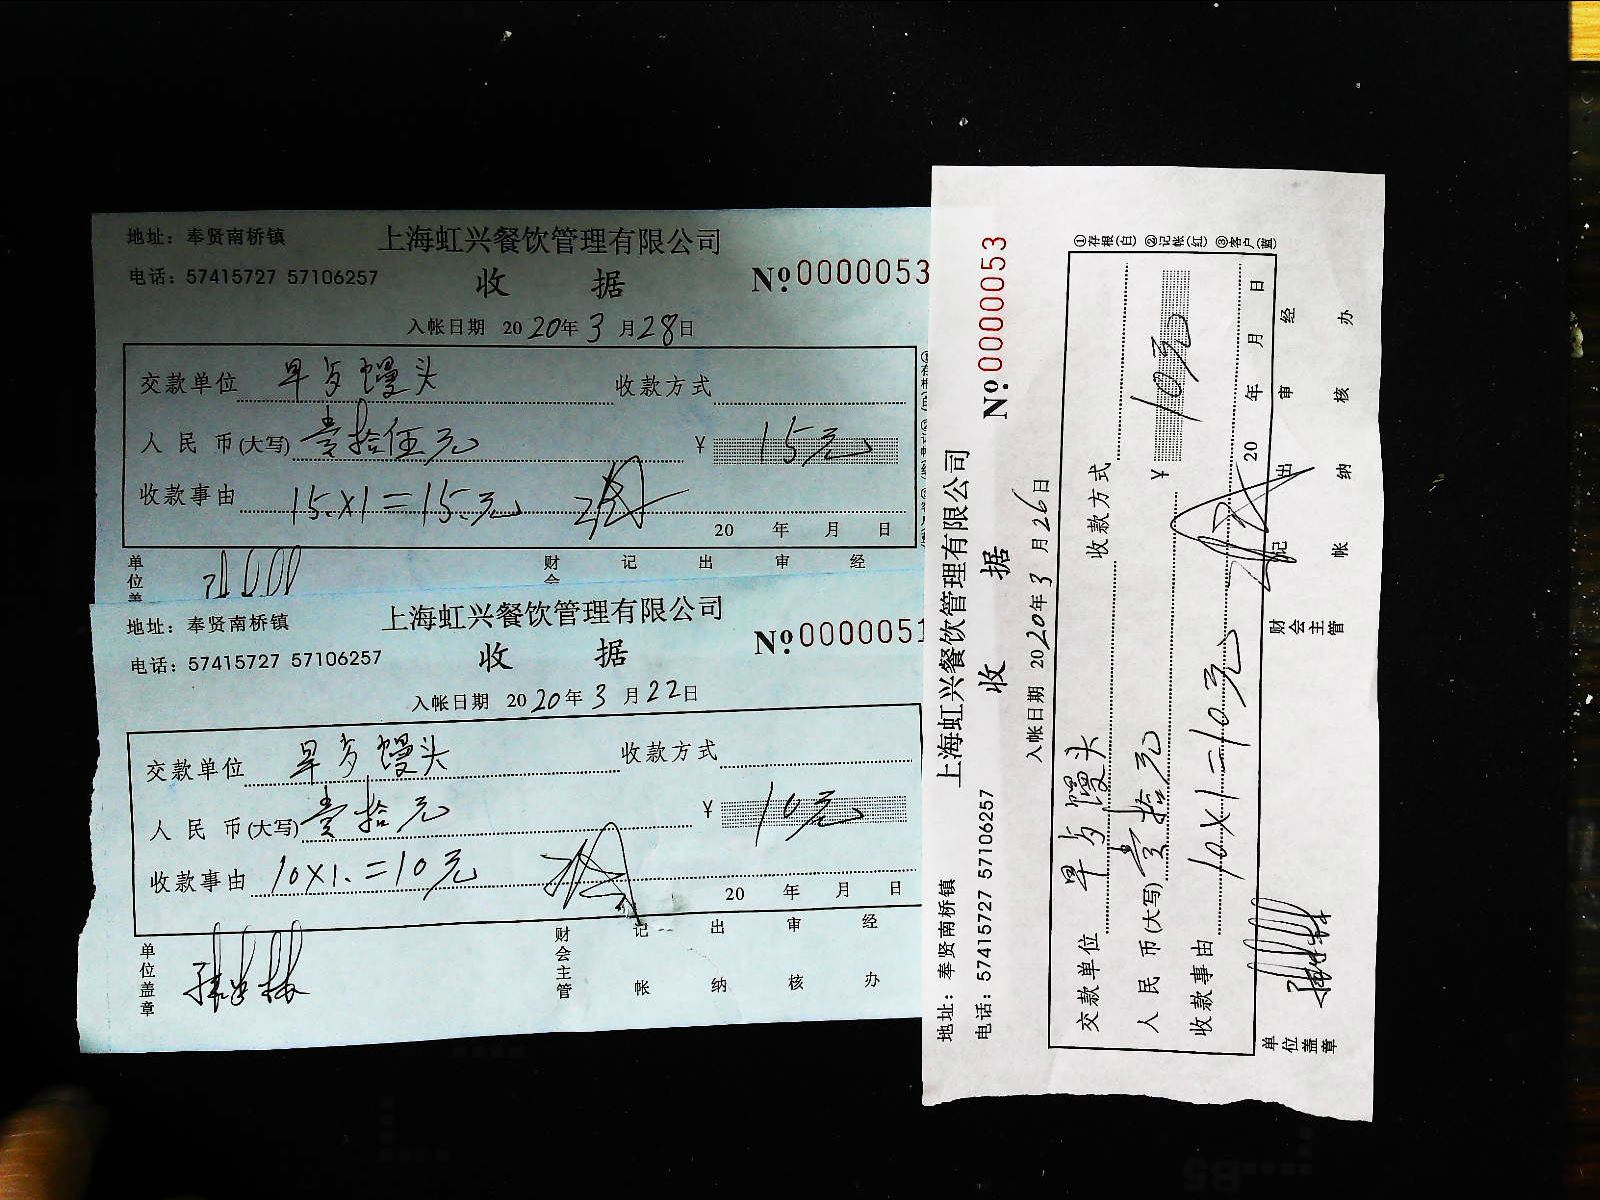 地址：奉贤南桥镇 上海虹兴餐饮管理有限公司
电话：57415727 57106257 收 据 № 0000053
入帐日期 2020年3月28日
交款单位 早 馒头 收款方式
人民币(大写) 壹拾伍元 ¥ 15元
收款事由 15×1=15元
20 年 月 日
单位盖 财会 记 出 审 经
地址：奉贤南桥镇 上海虹兴餐饮管理有限公司
电话：57415727 57106257 收 据 № 0000051
入帐日期 2020年3月22日
交款单位 早 馒头 收款方式
人民币(大写) 壹拾元 ¥ 10元
收款事由 10×1.=10元
20 年 月 日
单位盖章 财会主管 记帐 出纳 审核 经办
地址：奉贤南桥镇 上海虹兴餐饮管理有限公司
电话：57415727 57106257 收 据 № 0000053
入帐日期 2020年3月26日
①存根(白) ②记帐(红) ③客户(蓝)
交款单位 早 馒头 收款方式
人民币(大写) 壹拾元 ¥ 10元
收款事由 10×1=10元
20 年 月 日
单位盖章 财会主管 记帐 出纳 审核 经办